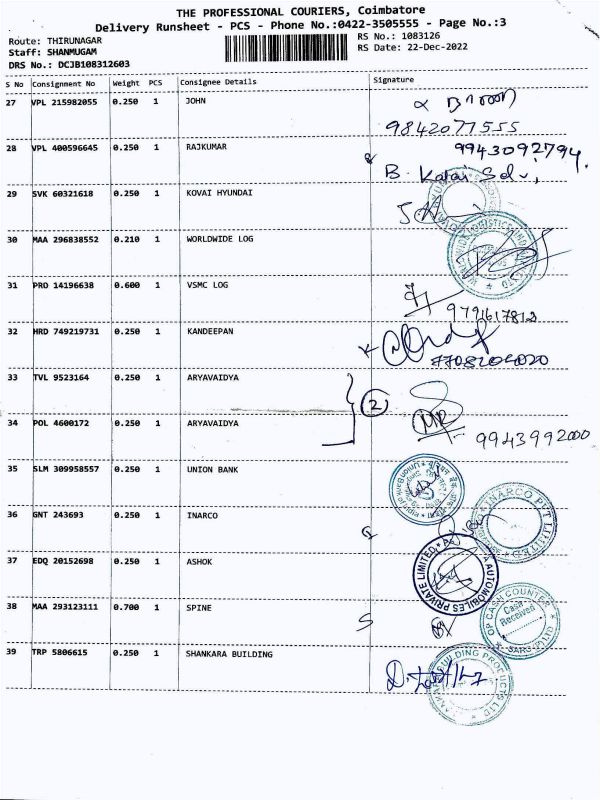 THE PROFESSIONAL COURIERS, Coimbatore
Delivery Runsheet - PCS - Phone No.:0422-3505555 - Page No.:3
Route: THIRUNAGAR RS No.: 1083126
Staff: SHANMUGAM RS Date: 22-Dec-2022
DRS No.: DCJB108312603
S No Consignment No Weight PCS Consignee Details Signature
27 VPL 215982055 0.250 1 JOHN
9842077555
28 VPL 400596645 0.250 1 RAJKUMAR 9943092794.
B.
29 SVK 60321618 0.250 1 KOVAI HYUNDAI
30 MAA 296838552 0.210 1 WORLDWIDE LOG
31 PRO 14196638 0.600 1 VSMC LOG
9791617812
32 HRD 749219731 0.250 1 KANDEEPAN
7708204020
33 TVL 9523164 0.250 1 ARYAVAIDYA
2
34 POL 4600172 0.250 1 ARYAVAIDYA MR
9943992000
35 SLM 309958557 0.250 1 UNION BANK
36 GNT 243693 0.250 1 INARCO INARCO PVT LIMITED
37 EDQ 20152698 0.250 1 ASHOK AUTOMOBILES PRIVATE LIMITED
38 MAA 293123111 0.700 1 SPINE OP CASH COUNTER
Cash
Received
39 TRP 5806615 0.250 1 SHANKARA BUILDING BUILDING PRODUCTS LTD